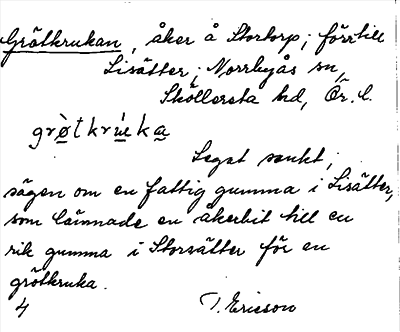 Grötkrukan, åker å Stortorp; förr till
Lisätter; Norrbyås sn,
Sköllersta hd, Ör. l.
grø̀tkrùka
Legat sankt;
sägen om en fattig gumma i Lisätter,
som lämnade en åkerbit till en
rik gumma i Storsätter för en
grötkruka.
4 T. Ericson